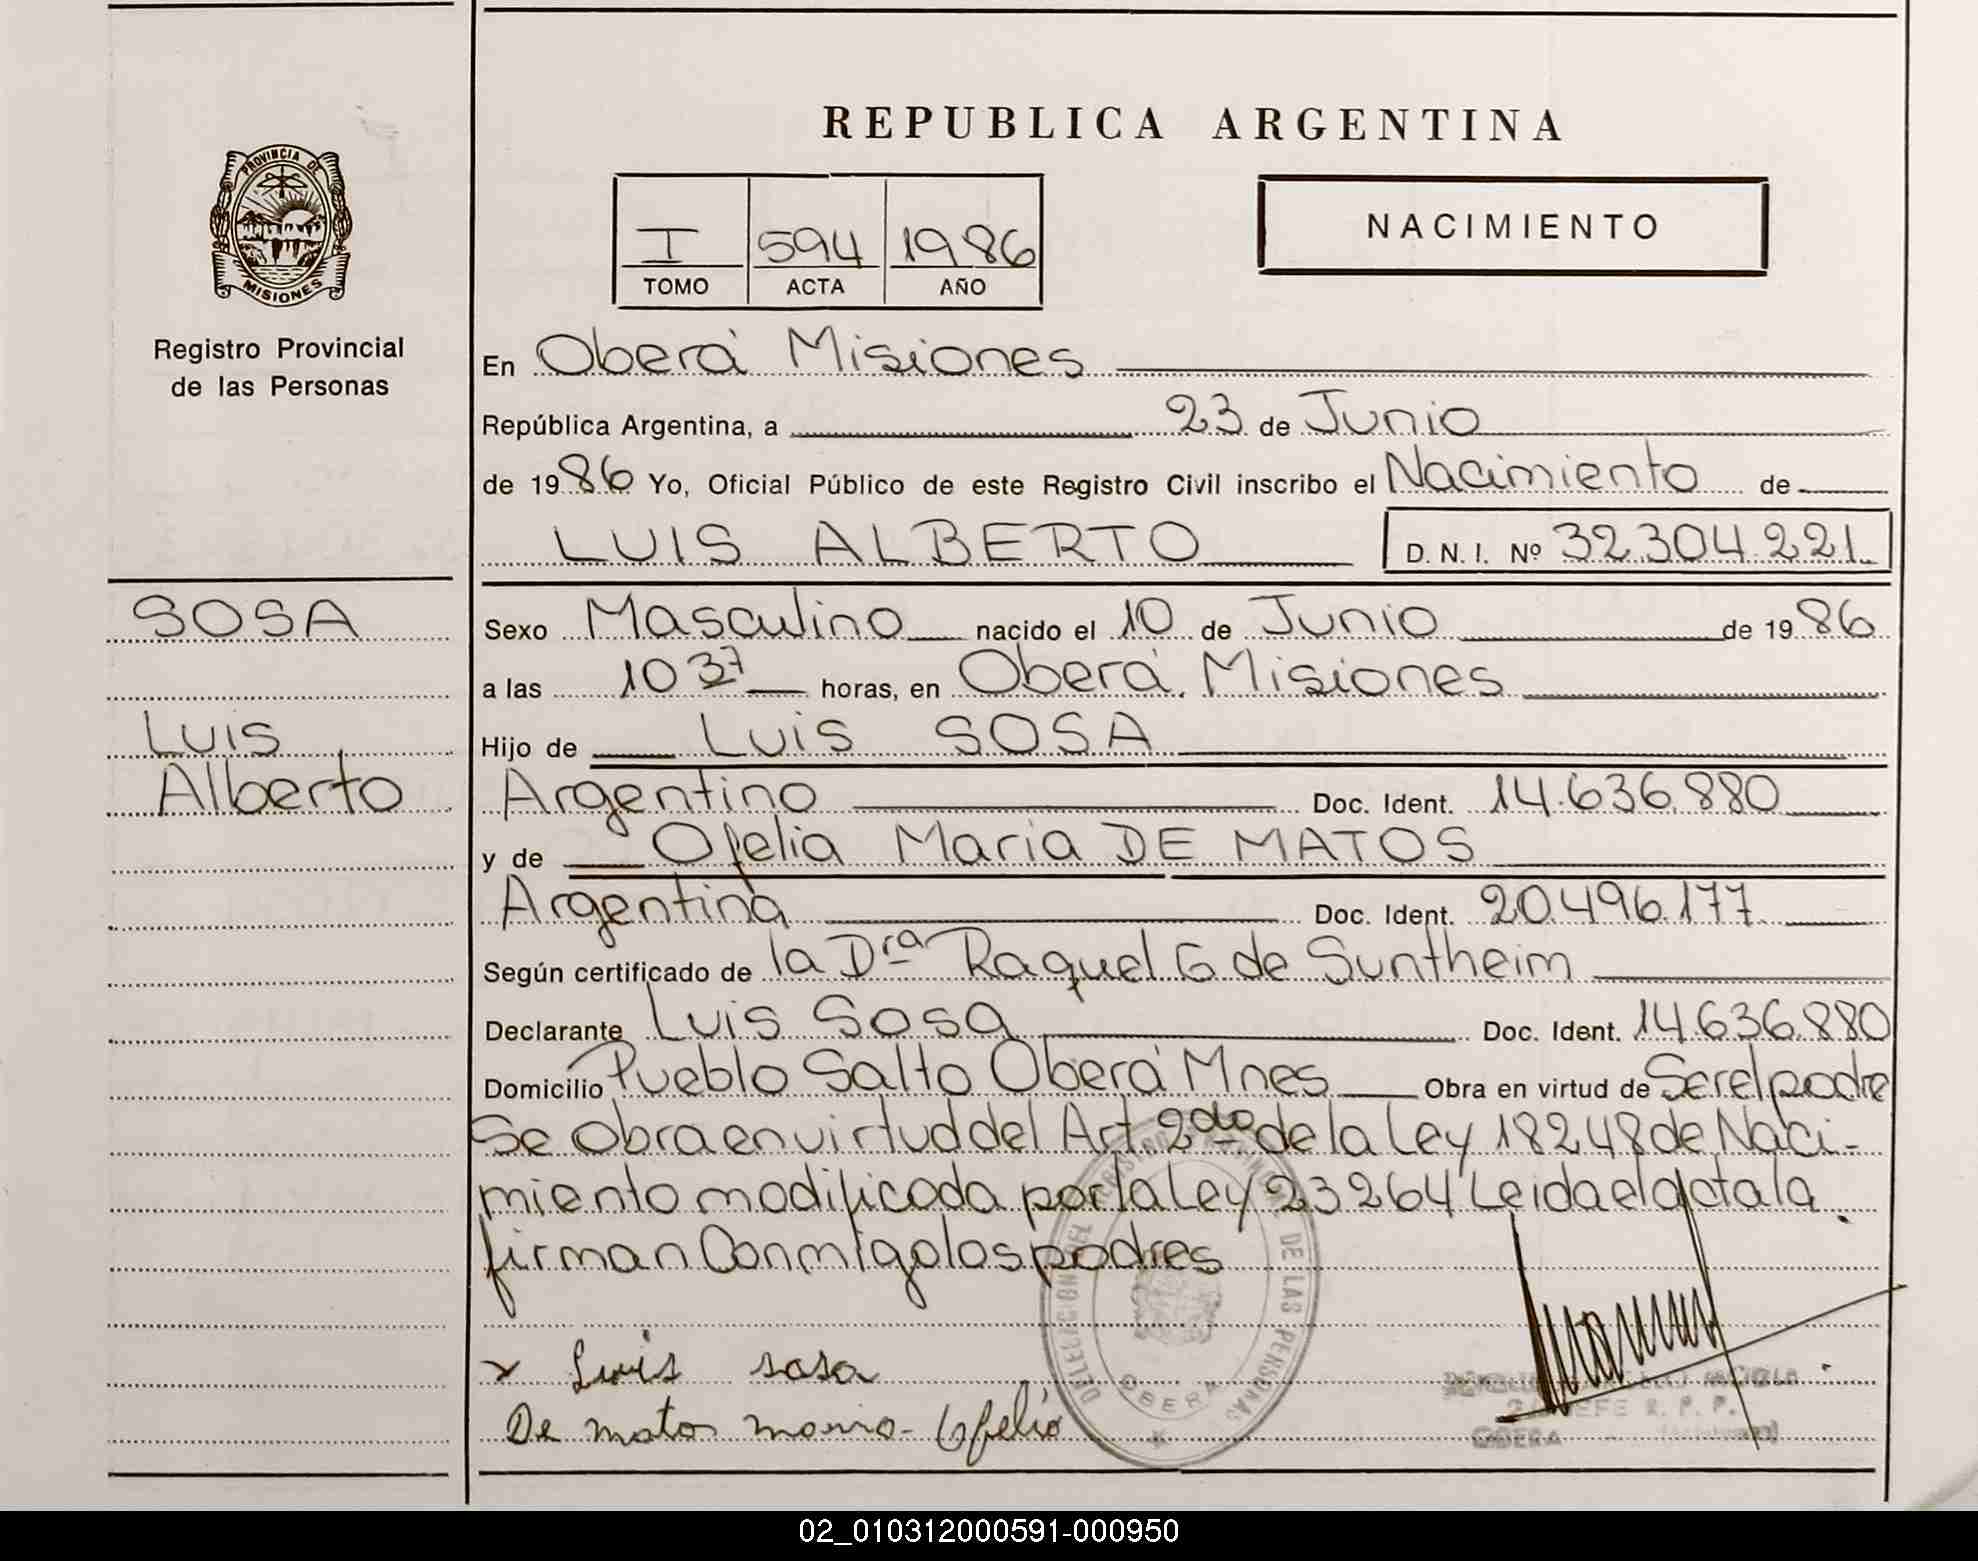 REPUBLICA ARGENTINA
PROVINCIA DE
MISIONES
Registro Provincial
de las Personas
I 594 1986
TOMO ACTA AÑO
NACIMIENTO
En Oberá Misiones
República Argentina, a 23 de Junio
de 1986 Yo, Oficial Público de este Registro Civil inscribo el Nacimiento de
LUIS ALBERTO D. N. I. Nº 32.304.221
SOSA
Luis
Alberto
Sexo Masculino nacido el 10 de Junio de 1986
a las 10 37 horas, en Oberá, Misiones
Hijo de Luis SOSA
Argentino Doc. Ident. 14.636.880
y de Ofelia Maria DE MATOS
Argentina Doc. Ident. 20.496.177
Según certificado de la Dra Raquel G de Suntheim
Declarante Luis Sosa Doc. Ident. 14.636.880
Domicilio Pueblo Salto Oberá Mnes Obra en virtud de Ser el padre
Se obra en virtud del Art. 2do de la Ley 18248 de Naci-
miento modificada por la Ley 23264 Leida el acta la
firman Conmigo los padres
DELEGACION DEL REGISTRO PROVINCIAL DE LAS PERSONAS
OBERA
Luis sosa
De matos maria Ofelia
JEFE R. P. P.
OBERA
02_010312000591-000950